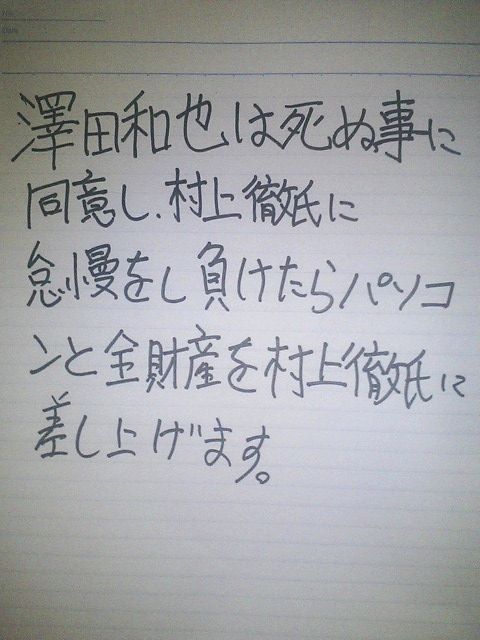 澤田和也は死ぬ事に
同意し、村上徹氏に
怠慢をし負けたらパソコ
ンと全財産を村上徹氏に
差し上げます。